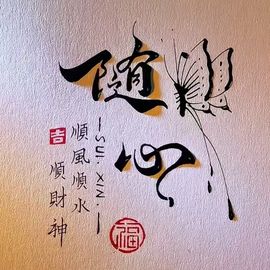 随心
—SUI XIN—
順風順水
順財神
吉
福